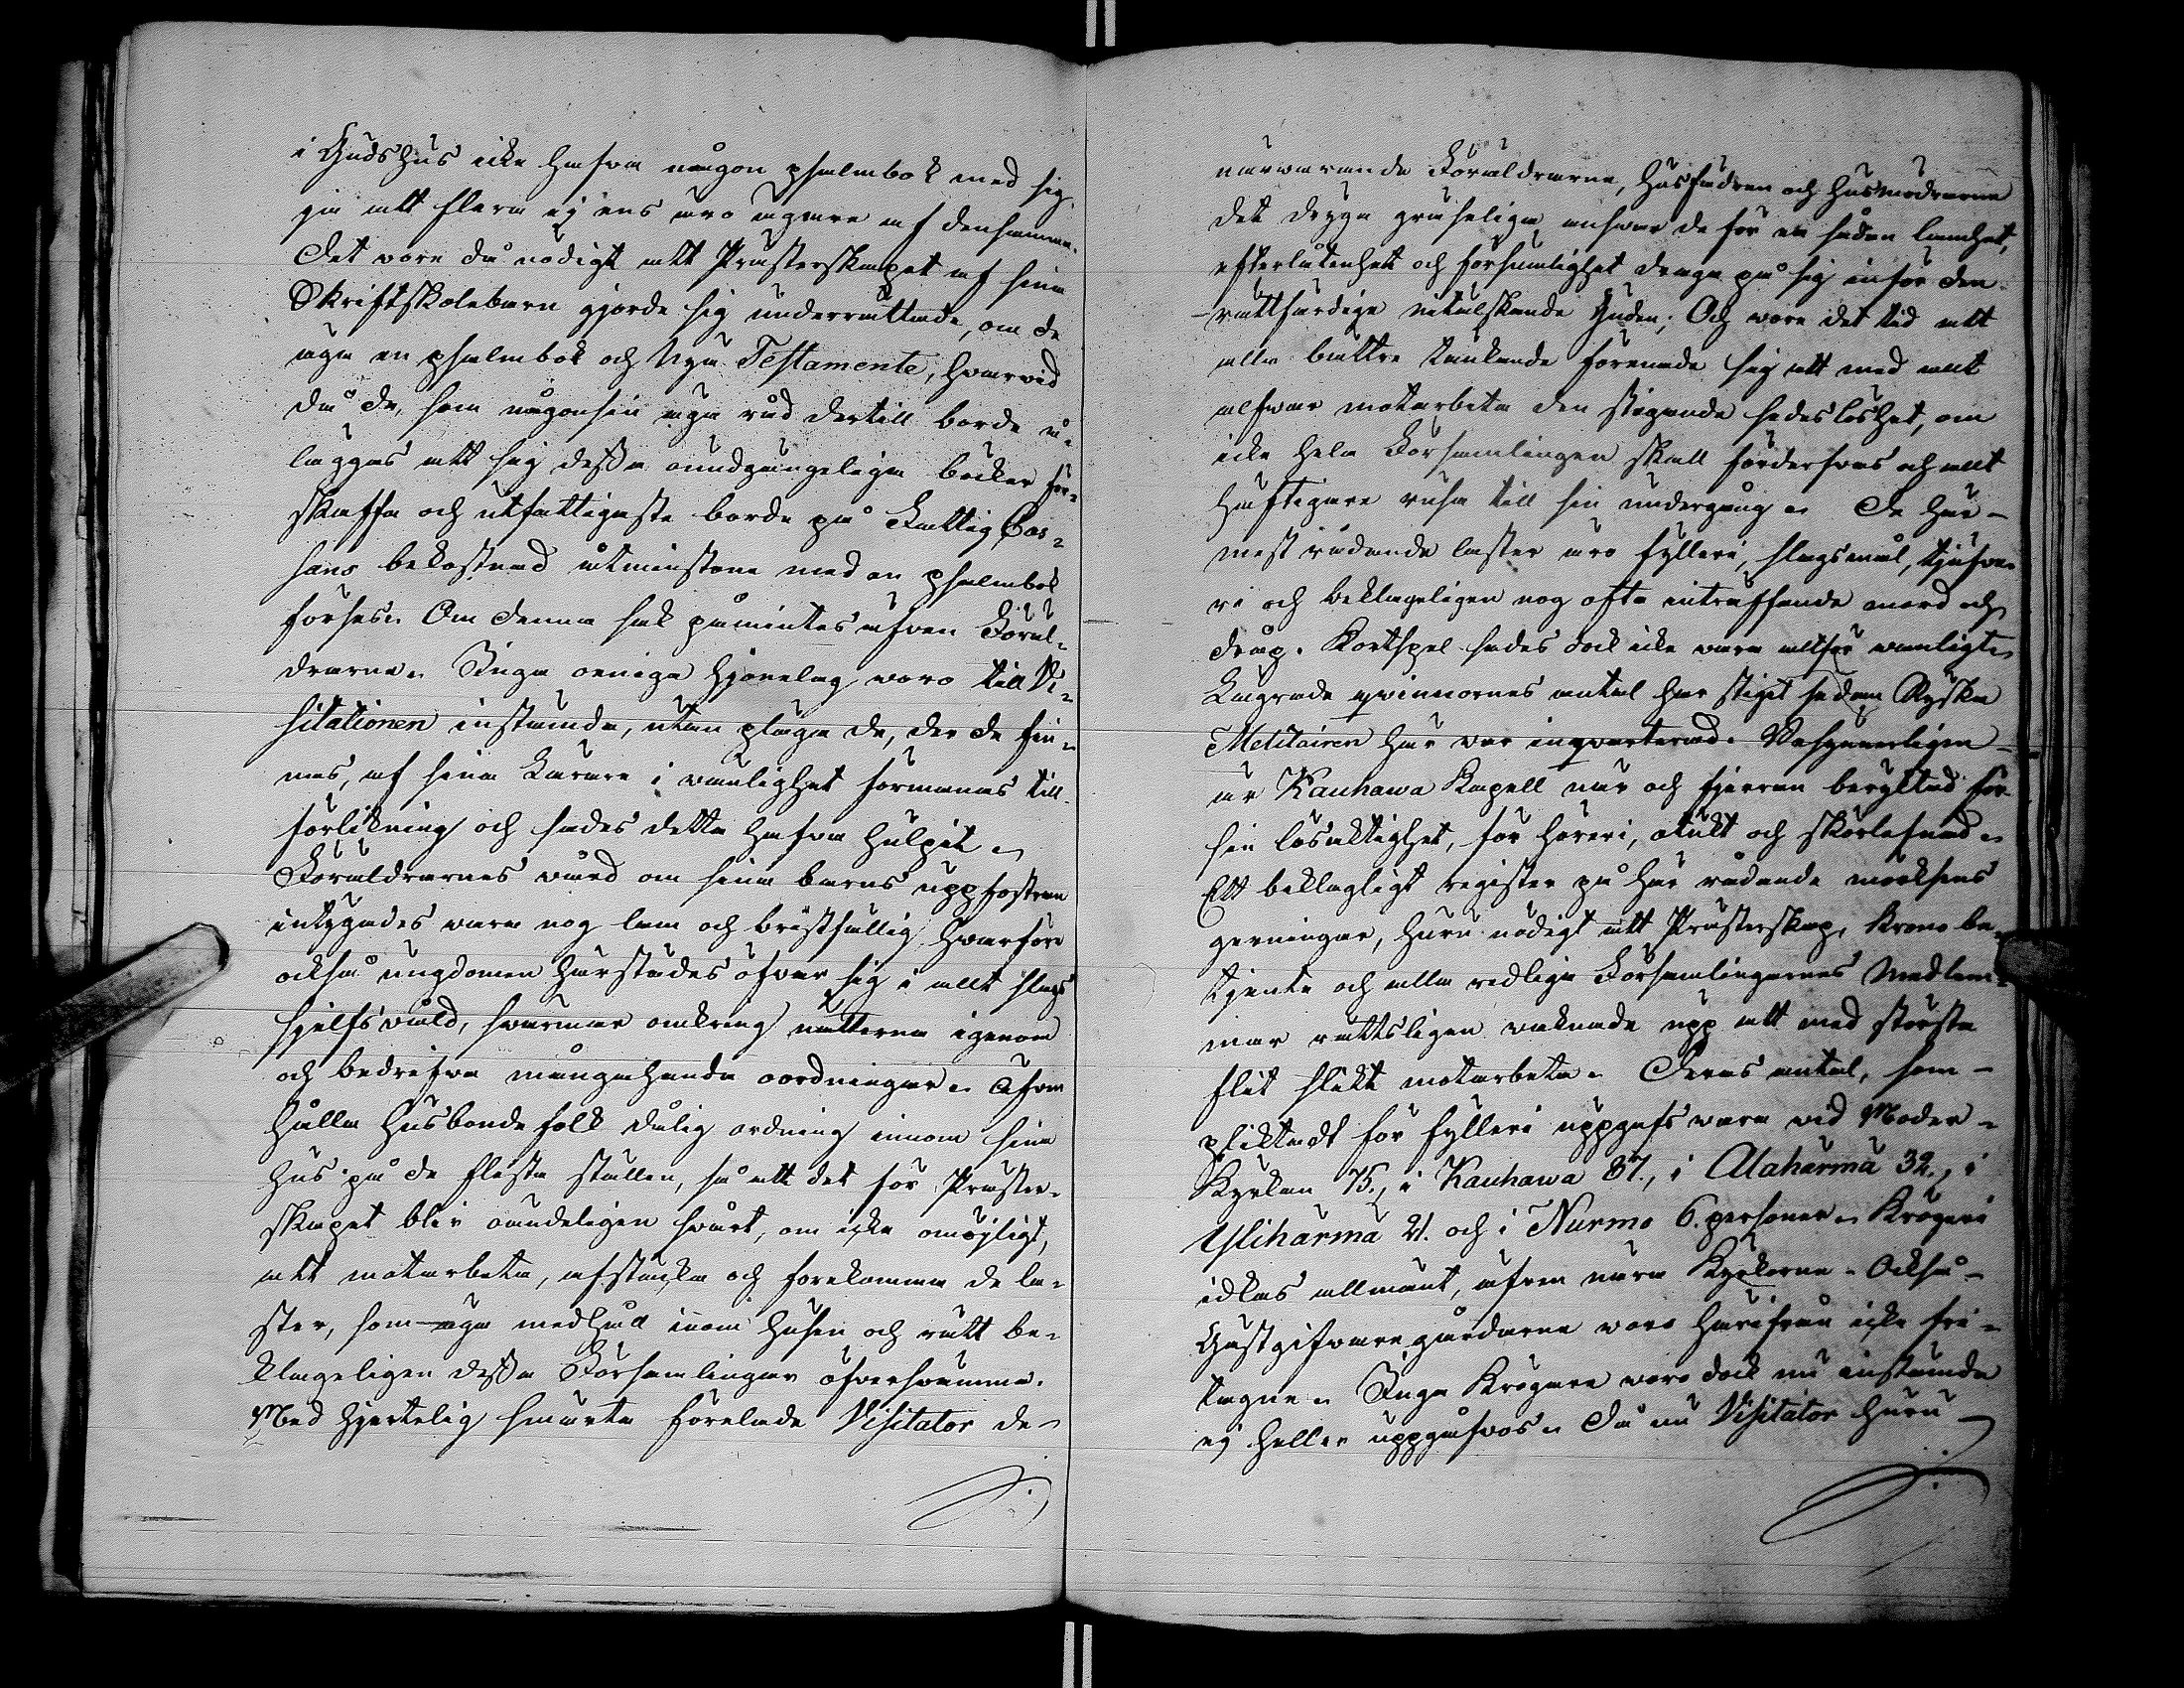 i Guds hus icke hafva någon psalmbok med sig
ja att flera ej ens äro ägare af densamma.
Det vore då nödigt att Prästerskapet af sina
Skriftskolebarn gjorde sig underrättade, om de
äga en psalmbok och Nya Testamente, hvarvid
då de, som någonsin äga råd dertill borde å-
läggas att sig dessa oundgängeliga böcker för-
skaffa och utfattigaste borde på Fattig Cas-
sans bekostnad åtminstone med en psalmbok
förses. Om denna sak påmintes äfven Föräl-
drarna. Inga oeniga Hjonelag voro till Vi-
sitationen instämda, utan pläga de, der de fin-
nas, af sina Lärare i vänlighet förmanas till
förlikning och sades detta hafva hulpit.
Föräldrarnes vård om sina barns uppfostran
intygades vara nog lam och bristfällig, hvarföre
också ungdomen härstädes öfvar sig i allt slags
sjelfsvåld, svärmar omkring nätterna igenom
och bedrifva mångahanda oordningar. Äfven
hålla Husbonde folk dålig ordning innom sina
hus på de flesta ställen, så att det för Präster-
skapet blir oändeligen svårt, om icke omöjligt,
att motarbeta, afstänka och förekomma de la-
ster, som äga medhåll inom husen och rätt be-
klageligen dessa Församlingar öfversvämma.
Med hjertelig smärta förelade Visitator de
närvarande Föräldrarna, husfädren och husmödrarna
det dryga gruseliga ansvar de för en sådan lamhet,
efterlåtenhet och försumlighet draga på sig inför den
rättfärdige nitälskande Guden; Och vore det tid att
alla bättre tänkande förenade sig att med allt
alfvar motarbeta den stigande sedeslöshet, om
icke hela Församlingen skall förderfvas och allt
häftigare rusa till sin undergång. De här
mest rådande laster äro fylleri, slagsmål, tjufve-
ri och beklageligen nog ofta inträffande mord och
dråp. Kortspel sades dock icke vara altför vanligt.
Lägrade qvinnornes antal har stigit sedan Ryska
Militairen här var inqvarterad. Vasynnerligen
är Kauhawa Kapell när och fjerran beryktad för
sin lösaktighet, för horeri, otukt och skörlefnad.
Ett beklagligt register på här rådande mörksens
gerningar, huru nödigt att Prästerskap, Krono be-
tjente och alla redliga Församlingarnes Medlem-
mar rättsligen vaknade upp att med största
flit slikt motarbeta. Deras antal, som
pliktadt för fylleri uppgafs vara vid Moder-
Kyrkan 75., i Kauhawa 87., i Alahärmä 32., i
Yliharmä 21. och i Nurmo 6. personer. Krögeri
idkas allmänt, äfven nära Kyrkorna. Också
Gästgifvare gårdarne voro härifrån icke fri-
tagne. Inga Krögare voro dock nu instämda
ej heller uppgåfvos. Då nu Visitator huru